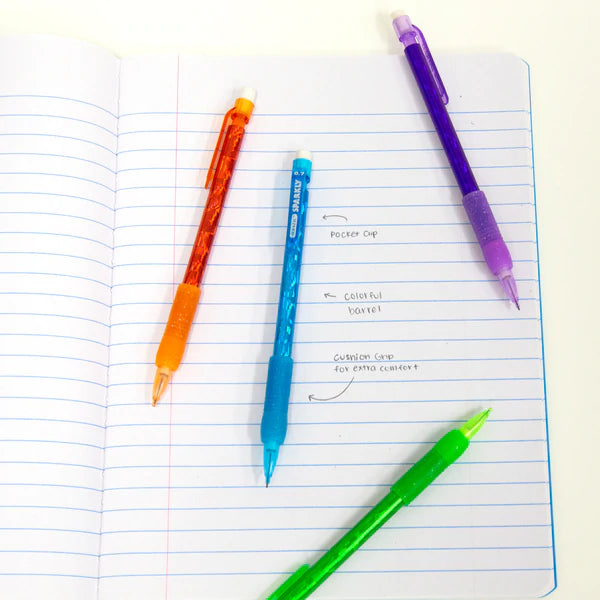 SPARKLY 0.7
Pocket Clip
Colorful
barrel
Cushion Grip
for extra comfort